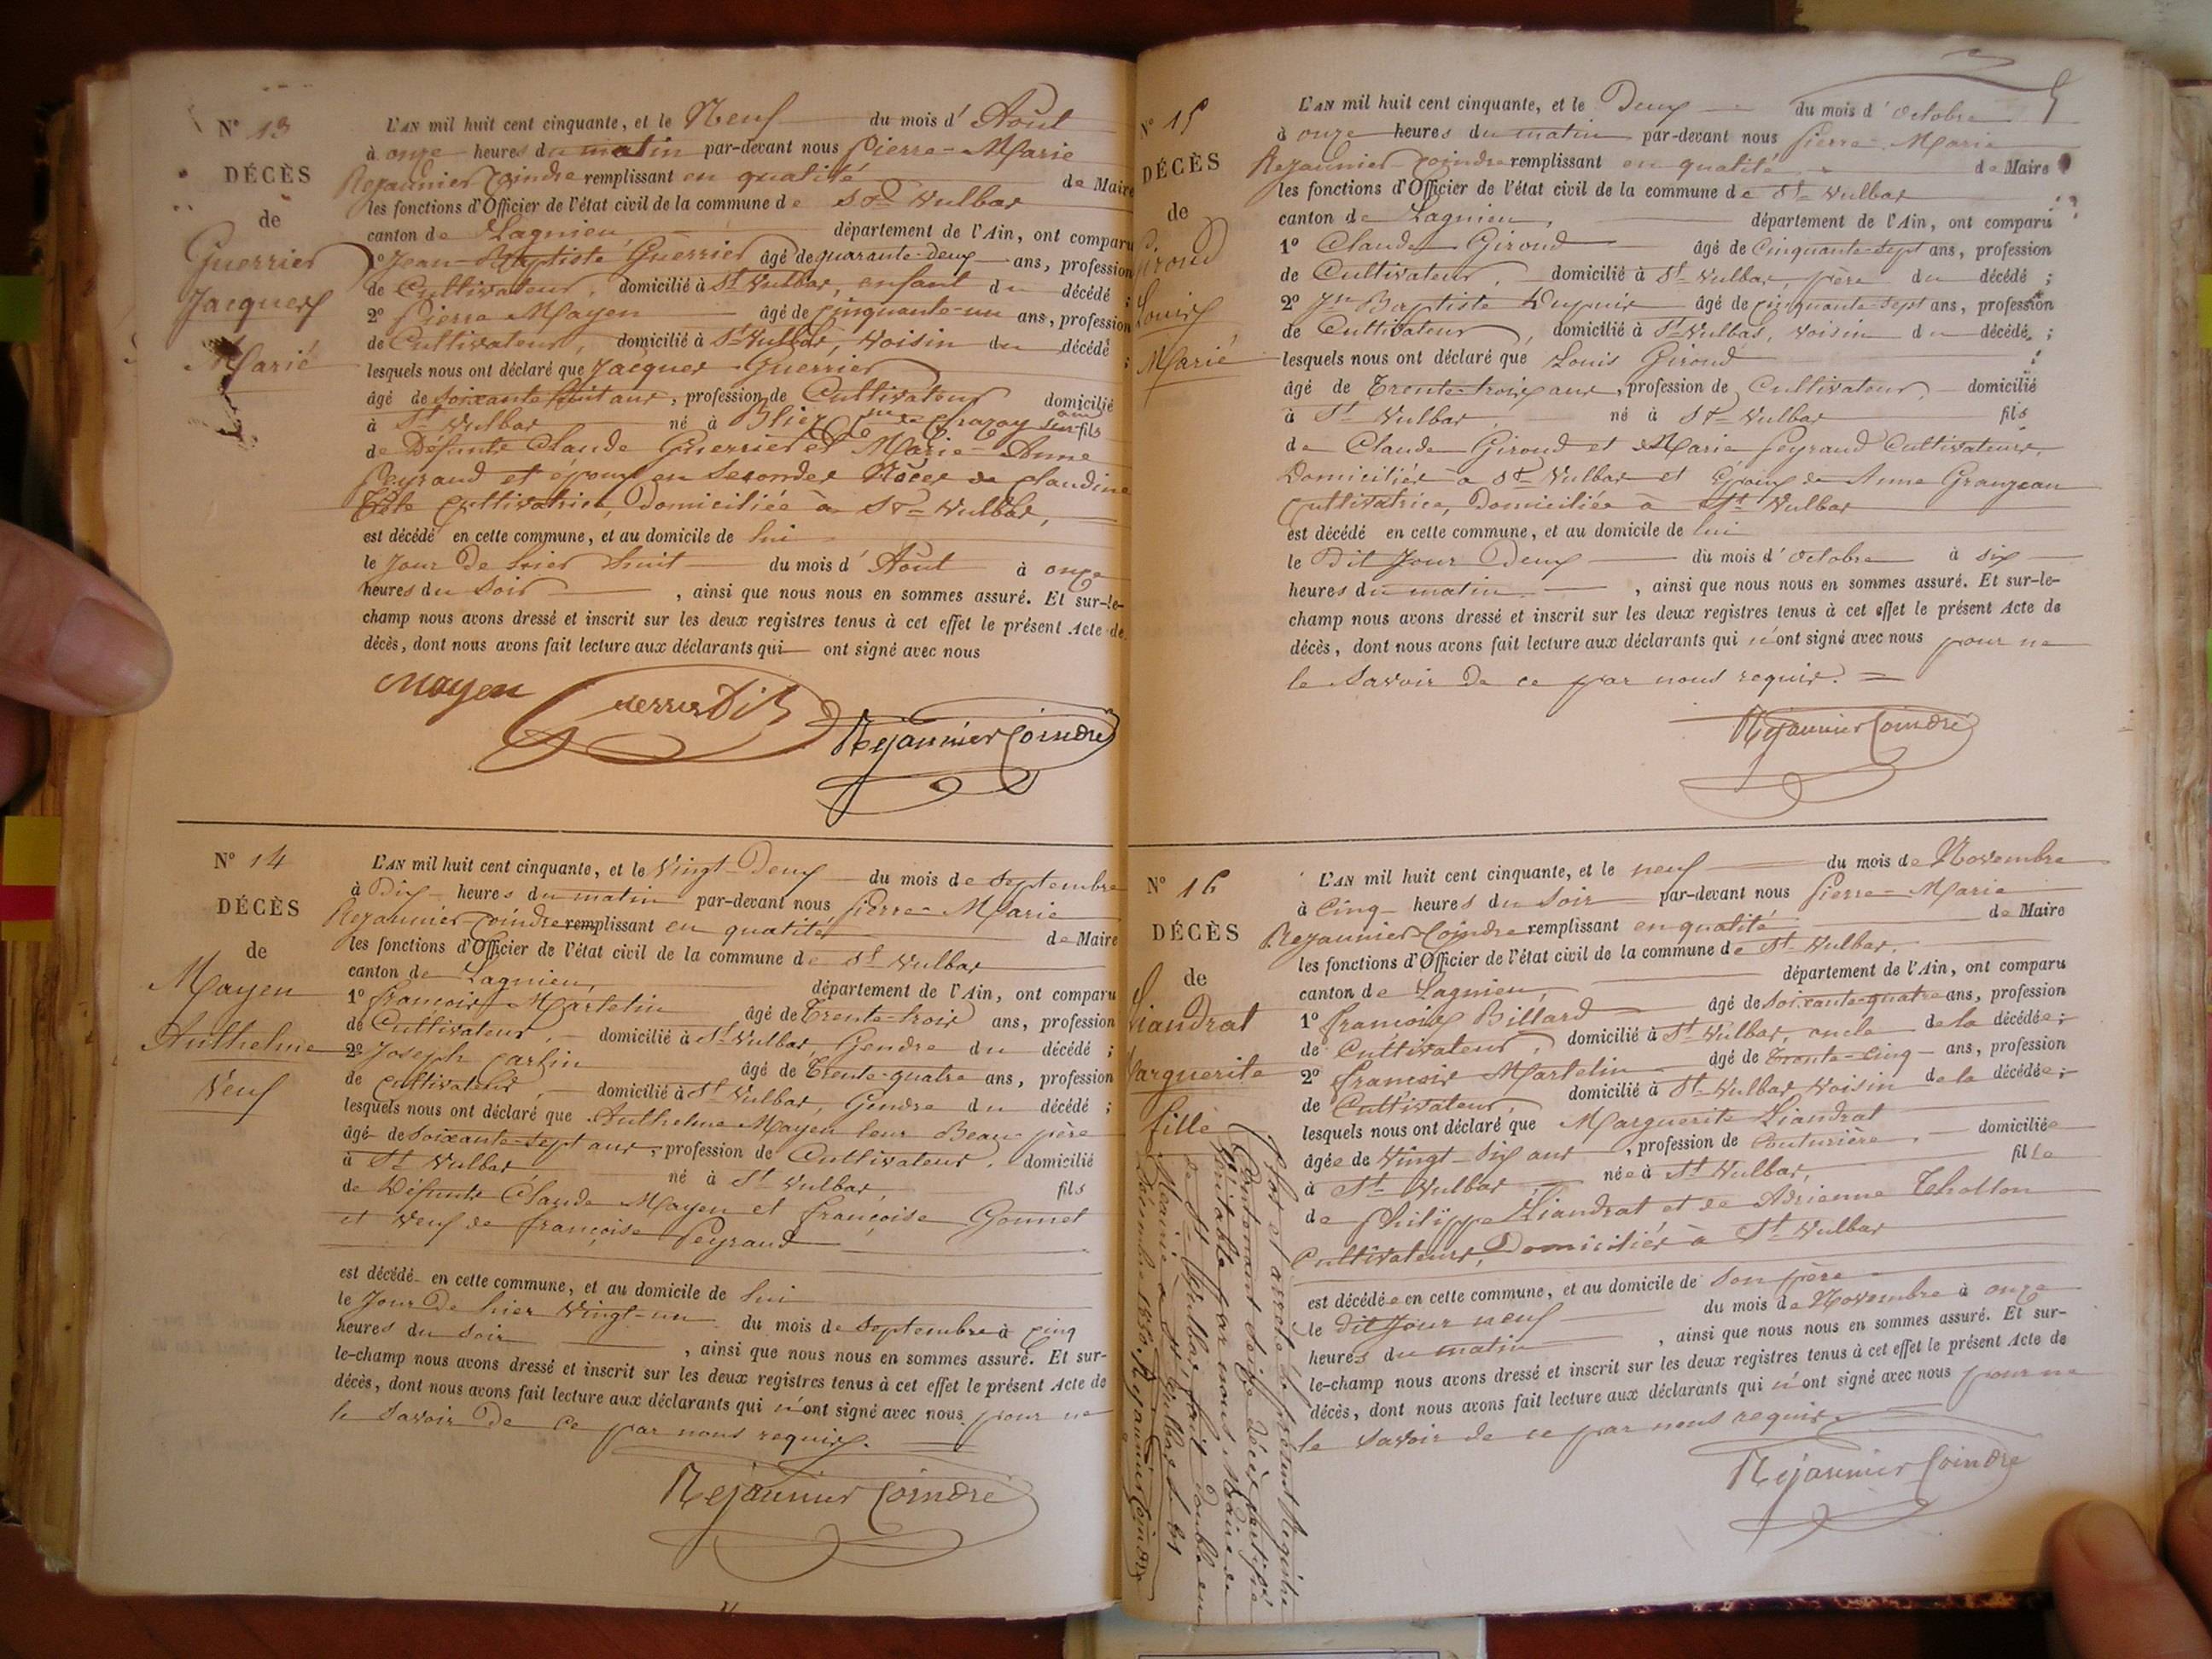 N° 13
DÉCÈS
de
Guerrier
Jacques
Marié
L'AN mil huit cent cinquante, et le Neuf du mois d' Août
à onze heures du matin par-devant nous Pierre-Marie
Rejaunier Coindre remplissant en qualité de Maire
les fonctions d'Officier de l'état civil de la commune de St Vulbas
canton de Lagnieu, département de l'Ain, ont comparu
1° Jean-Baptiste Guerrier âgé de quarante-deux ans, profession
de Cultivateur, domicilié à St Vulbas, enfant du décédé ;
2° Pierre Mayen âgé de cinquante-un ans, profession
de Cultivateur, domicilié à St Vulbas, voisin du décédé ;
lesquels nous ont déclaré que Jacques Guerrier
âgé de soixante huit ans, profession de Cultivateur domicilié
à St Vulbas né à Blier fils
de Défunts Claude Guerrier et Marie-Anne
Peyraud et époux en secondes Nôces de Claudine
cultivatrice, Domiciliée à St Vulbas,
est décédé en cette commune, et au domicile de lui
le Jour de hier huit du mois d' Août à onze
heures du soir, ainsi que nous nous en sommes assuré. Et sur-le-
champ nous avons dressé et inscrit sur les deux registres tenus à cet effet le présent Acte de
décès, dont nous avons fait lecture aux déclarants qui ont signé avec nous
Mayen Guerrier J B Rejaunier Coindre
N° 14
DÉCÈS
de
Mayen
Anthelme
Veuf
L'AN mil huit cent cinquante, et le Vingt-Deux du mois de septembre
à Dix heures du matin par-devant nous Pierre-Marie
Rejaunier-Coindre remplissant en qualité de Maire
les fonctions d'Officier de l'état civil de la commune de St Vulbas
canton de Lagnieu, département de l'Ain, ont comparu
1° françois Martelin âgé de Trente-trois ans, profession
de Cultivateur, domicilié à St Vulbas, Gendre du décédé ;
2° Joseph Carlin âgé de Trente-quatre ans, profession
de Cultivateur, domicilié à St Vulbas, Gendre du décédé ;
lesquels nous ont déclaré que Anthelme Mayen leur Beau-père
âgé de soixante-sept ans, profession de Cultivateur, domicilié
à St Vulbas né à St Vulbas, fils
de Défunts Claude Mayen et françoise Gonnet
et Veuf de françoise Peyraud
est décédé en cette commune, et au domicile de lui
le Jour de hier Vingt-un du mois de septembre à cinq
heures du soir, ainsi que nous nous en sommes assuré. Et sur-
le-champ nous avons dressé et inscrit sur les deux registres tenus à cet effet le présent Acte de
décès, dont nous avons fait lecture aux déclarants qui n'ont signé avec nous pour ne
le savoir de ce par nous requis.
Rejaunier Coindre
N° 15
DÉCÈS
de
Giroud
Louis
Marié
L'AN mil huit cent cinquante, et le Deux du mois d' octobre
à onze heures du matin par-devant nous Pierre-Marie
Rejaunier-Coindre remplissant en qualité de Maire
les fonctions d'Officier de l'état civil de la commune de St Vulbas
canton de Lagnieu, département de l'Ain, ont comparu
1° Claude Giroud âgé de Cinquante-sept ans, profession
de Cultivateur, domicilié à St Vulbas, père du décédé ;
2° Jn Baptiste Dupuis âgé de cinquante-sept ans, profession
de Cultivateur, domicilié à St Vulbas, voisin du décédé ;
lesquels nous ont déclaré que Louis Giroud
âgé de Trente-trois ans, profession de Cultivateur, domicilié
à St Vulbas, né à St Vulbas fils
de Claude Giroud et Marie Peyraud Cultivateurs,
Domiciliés à St Vulbas et époux de Anne Granjean
cultivatrice, Domiciliée à St Vulbas
est décédé en cette commune, et au domicile de lui
le Dit Jour Deux du mois d' octobre à six
heures du matin, ainsi que nous nous en sommes assuré. Et sur-le-
champ nous avons dressé et inscrit sur les deux registres tenus à cet effet le présent Acte de
décès, dont nous avons fait lecture aux déclarants qui n'ont signé avec nous pour ne
le savoir de ce par nous requis.
Rejaunier Coindre
N° 16
DÉCÈS
de
Liandrat
Marguerite
fille
L'AN mil huit cent cinquante, et le neuf du mois de Novembre
à Cinq heures du soir par-devant nous Pierre-Marie
Rejaunier-Coindre remplissant en qualité de Maire
les fonctions d'Officier de l'état civil de la commune de St Vulbas,
canton de Lagnieu, département de l'Ain, ont comparu
1° françois Billard âgé de soixante-quatre ans, profession
de Cultivateur, domicilié à St Vulbas, oncle de la décédée ;
2° françois Martelin âgé de Trente-Cinq ans, profession
de Cultivateur, domicilié à St Vulbas, voisin de la décédée ;
lesquels nous ont déclaré que Marguerite Liandrat
âgée de Vingt-Six ans, profession de Couturière, domiciliée
à St Vulbas, née à St Vulbas, fille
de Philippe Liandrat et de Adrienne Thollon
Cultivateurs, Domiciliés à St Vulbas
est décédée en cette commune, et au domicile de son père
le dit Jour neuf du mois de Novembre à onze
heures du matin, ainsi que nous nous en sommes assuré. Et sur-
le-champ nous avons dressé et inscrit sur les deux registres tenus à cet effet le présent Acte de
décès, dont nous avons fait lecture aux déclarants qui n'ont signé avec nous pour ne
le savoir de ce par nous requis.
Rejaunier Coindre
Clos et arrêté le présent Registre
Contenant seize décès certifié
véritable par nous Maire
de St Vulbas, fait double en
Mairie à St Vulbas le 31
Décembre 1850. Rejaunier Coindre